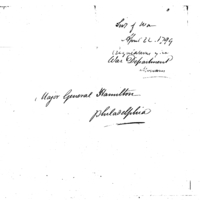 Secy of War
April 22. 1799
War Department
Major General Hamilton
Philadelphia